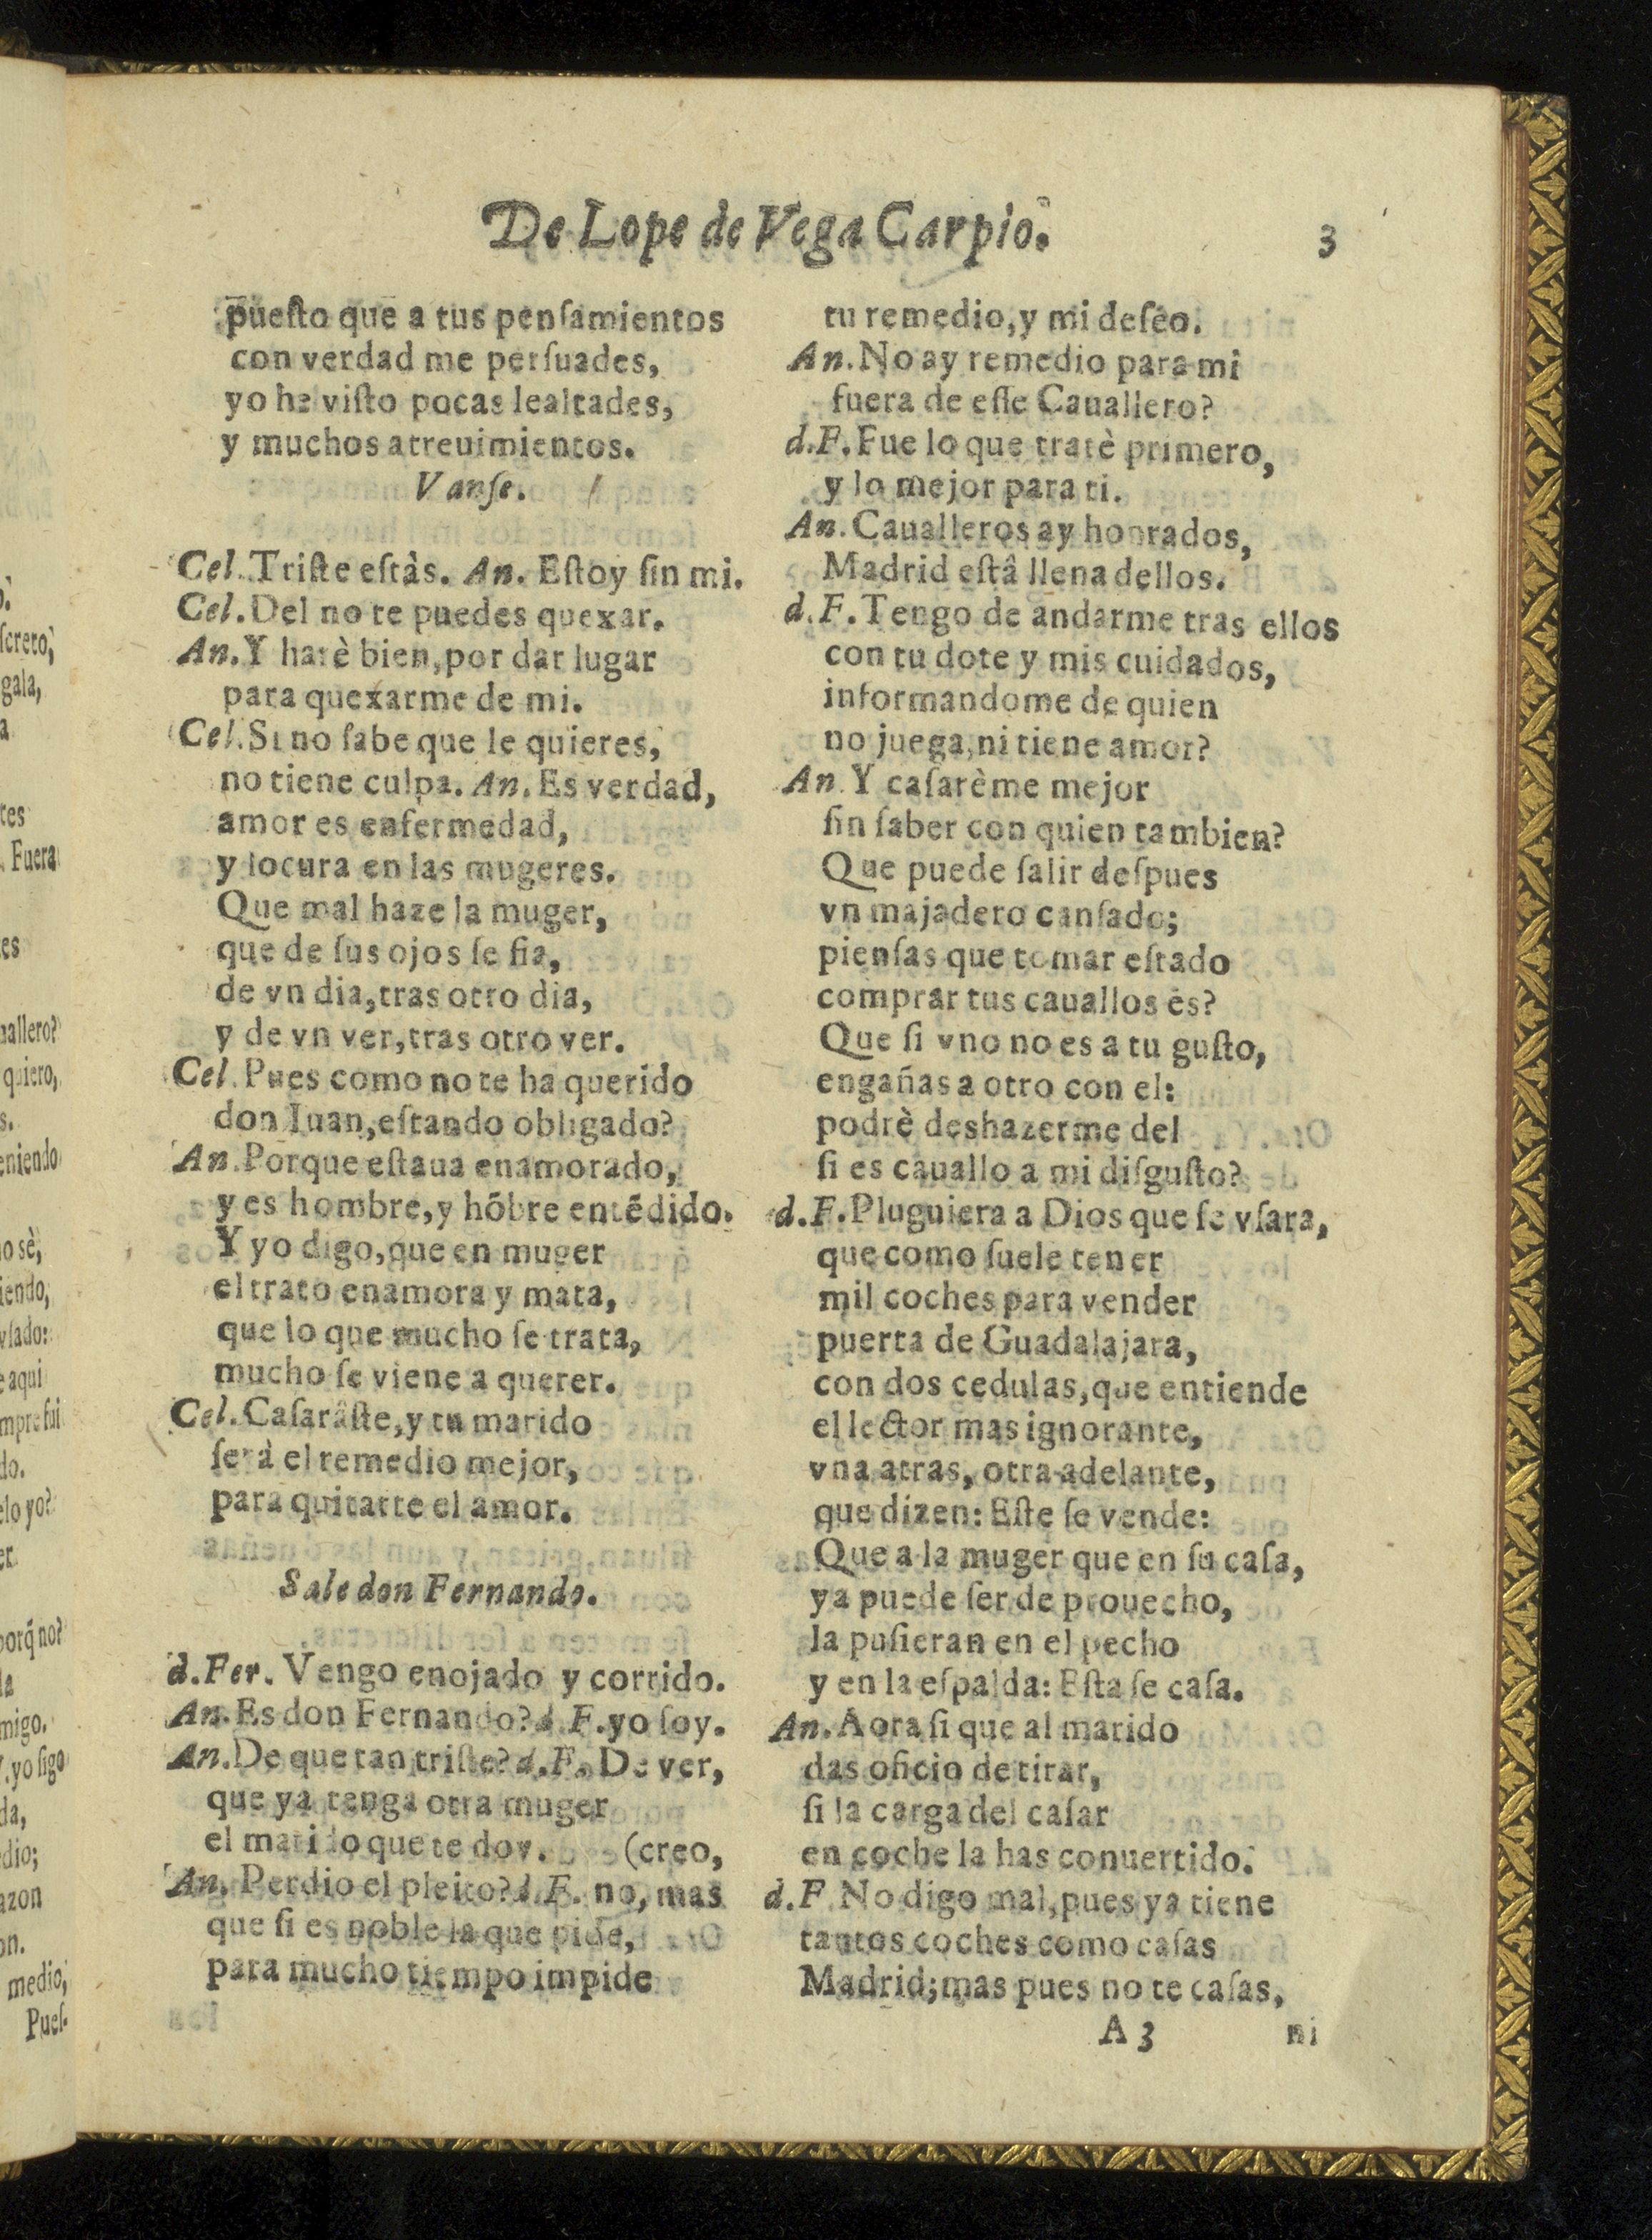 De Lope de Vega Carpio.
3
puesto que a tus pensamientos
con verdad me persuades,
yo he visto pocas lealtades,
y muchos atreuimientos.
Vanse.
Cel. Triste estàs. An. Estoy sin mi.
Cel. Del no te puedes quexar.
An. Y harè bien, por dar lugar
para quexarme de mi.
Cel. Si no sabe que le quieres,
no tiene culpa. An. Es verdad,
amor es enfermedad,
y locura en las mugeres.
Que mal haze la muger,
que de sus ojos se fia,
de vn dia, tras otro dia,
y de vn ver, tras otro ver.
Cel. Pues como no te ha querido
don Iuan, estando obligado?
An. Porque estaua enamorado,
y es hombre, y hõbre entẽdido.
Y yo digo, que en muger
el trato enamora y mata,
que lo que mucho se trata,
mucho se viene a querer.
Cel. Casarâste, y tu marido
serà el remedio mejor,
para quitarte el amor.
Sale don Fernando.
d.Fer. Vengo enojado y corrido.
An. Es don Fernando? d.F. yo soy.
An. De que tan triste? d.F. De ver,
que ya tenga otra muger
el marido que te doy. (creo,
An. Perdio el pleito? d.F. no, mas
que si es noble la que pide,
para mucho tiempo impide
tu remedio, y mi deseo.
An. No ay remedio para mi
fuera de esse Cauallero?
d.F. Fue lo que tratè primero,
y lo mejor para ti.
An. Caualleros ay honrados,
Madrid estâ llena dellos.
d.F. Tengo de andarme tras ellos
con tu dote y mis cuidados,
informandome de quien
no juega, ni tiene amor?
An. Y casarème mejor
sin saber con quien tambien?
Que puede salir despues
vn majadero cansado;
piensas que tomar estado
comprar tus cauallos es?
Que si vno no es a tu gusto,
engañas a otro con el:
podrè deshazerme del
si es cauallo a mi disgusto?
d.F. Pluguiera a Dios que se vsara,
que como suele tener
mil coches para vender
puerta de Guadalajara,
con dos cedulas, que entiende
el lector mas ignorante,
vna atras, otra adelante,
que dizen: Este se vende:
Que a la muger que en su casa,
ya puede ser de prouecho,
la pusieran en el pecho
y en la espalda: Esta se casa.
An. Aora si que al marido
das oficio de tirar,
si la carga del casar
en coche la has conuertido.
d.F. No digo mal, pues ya tiene
tantos coches como casas
Madrid; mas pues no te casas,
A 3
ni